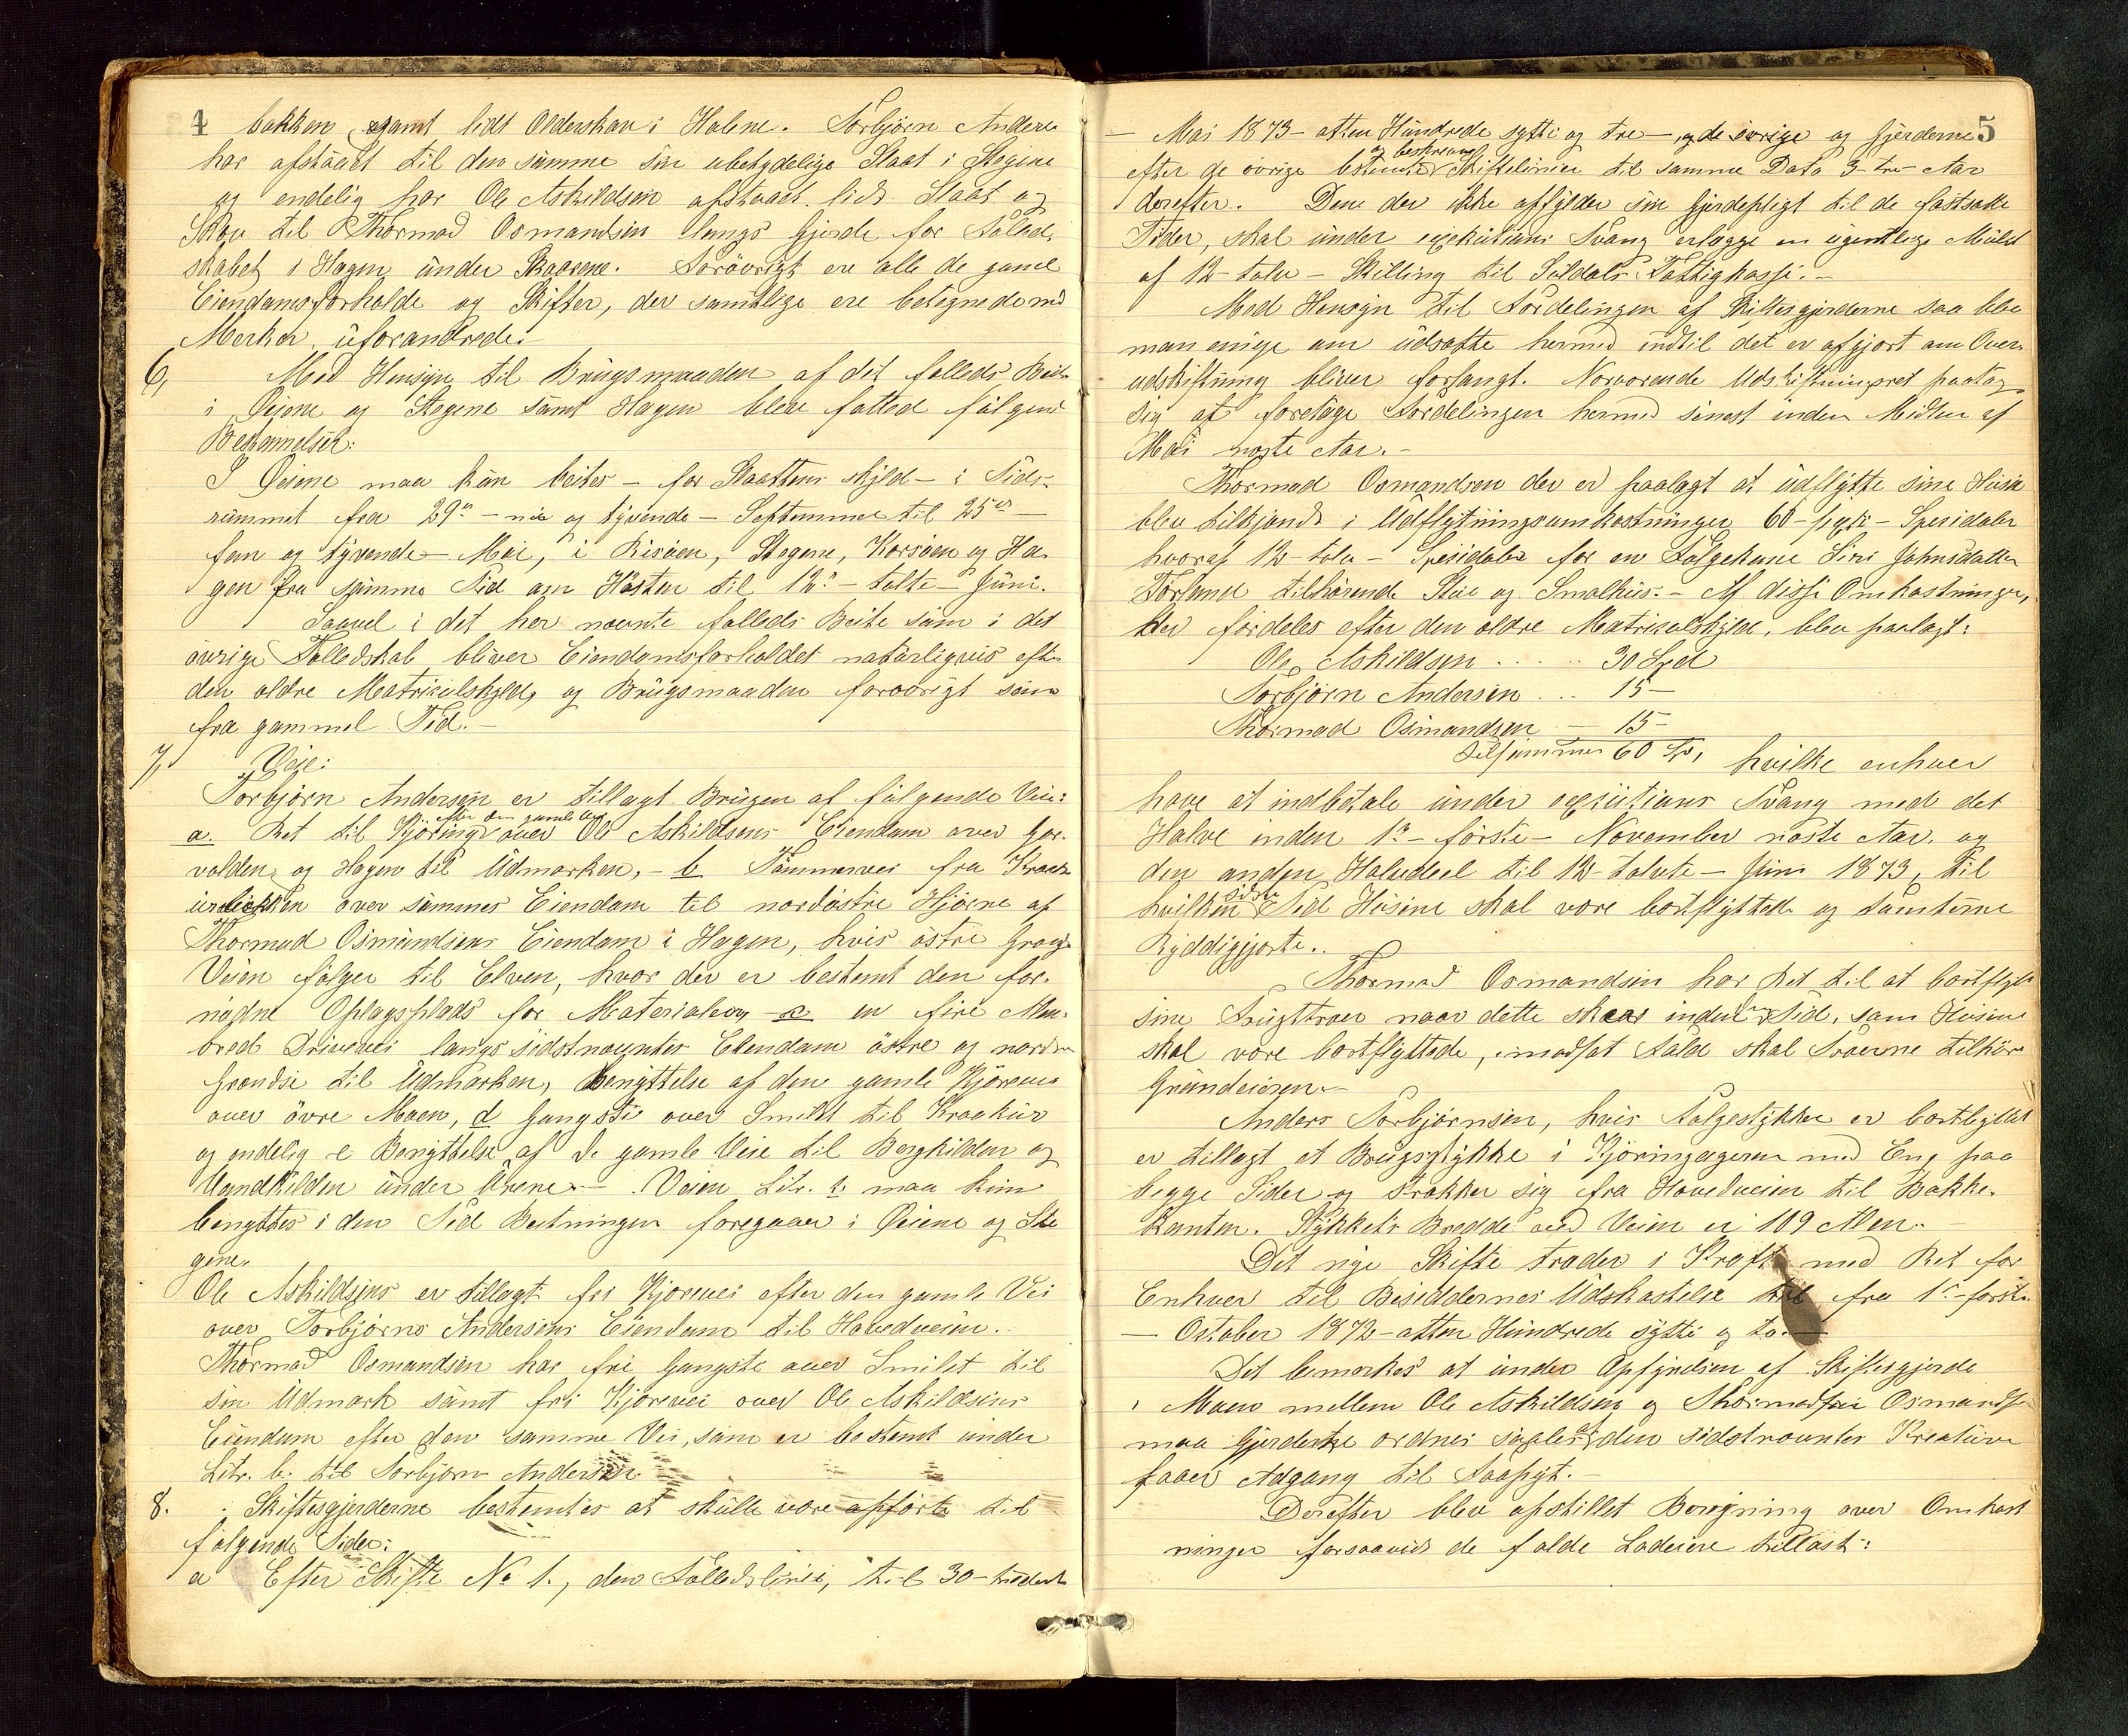 4
bakken, samt lidt Olderskau i Halene. Torbjørn Anderse
har afstaaet til den samme sin ubetydelige Slaat i Stegene
og endelig har Ole Askildsen afstaaet lidt Slaat og
Skau til Thormod Osmundsen langs Gjerde for Fælled-
skabet i Hagen under Skaarene. Forøvrigt ere alle de gamle
Eiendomsforholde og Skifter, der samtlige ere betegnede med
Merker, uforandrede.
6,
Med Hensyn til Brugsmaaden af det fælleds Beite
i Øiene og Stegene samt Hagen bleve fattede følgende
Bestemmelser:
I Øiene maa kun beites - for Slaattens skyld - i Tids-
rummet fra 29de - nie og tyvende - September til 25de -
fem og tyvende - Mai, i Risøen, Stegene, Korsøen og Ha-
gen fra samme Tid om Høsten til 12te - tolvte - Juni.
Saavel i det her nævnte fælleds Beite som i det
øvrige Fælledskab bliver Eiendomsforholdet naturligvis efter
den ældre Matrikulskyld, og Brugsmaaden forøvrigt som
fra gammel Tid. -
7,
Veie:
Torbjørn Andersen er tillagt Brugen af følgende Veie:
efter den gamle Vei
a. Ret til Kjøring over Ole Askildsens Eiendom over Gjor-
volden og Hagen til Udmarken, - b Tømmervei fra Kraak
urbakken over sammes Eiendom til nordøstre Hjørne af
Thormod Osmundsens Eiendom i Hagen, hvis østre Grændse
Veien følger til Elven, hvor der er bestemt den for-
nødne Oplagsplads for Materialerne - c en fire Alen
bred Drivevei langs sidstnævntes Eiendom østre og nordre
Grændse til Udmarken, Benyttelse af den gamle Kjørevei
over øvre Moen, d Gangsti over Smilet til Kraakur
og endelig e Benyttelse af de gamle Veie til Bergkilden og
Vandkilden under Aarene. - Veien Litr. c maa kun
benyttes i den Tid Beitningen foregaaer i Øiene og Ste
gene.
Ole Askildsens er tillagt fri Kjørevei efter den gamle Vei
over Torbjørns Andersens Eiendom til Hovedveien.
Thormod Osmundsen har fri Gangsti over Smilet til
sin Udmark samt fri Kjørevei over Ole Askildsens
Eiendom efter den samme Vei, som er bestemt under
Litr. b. til Torbjørn Andersen
8.
Skiftesgjerderne bestemtes at skulle være opførte til
følgende Tider:
a Efter Skifte No 1., den Fælledslinie, til 30 - tredivte
5
- Mai 1873 - atten Hundrede sytti og tre - og de øvrige og Gjerderne
og beskrevne
efter de øvrige bestemte Skiftelinier til samme Dato 3 - tre - Aar
derefter. Den der ikke opfylder sin Gjerdepligt til de fastsatte
Tider, skal under exekutions Tvang erlægge en ugentlige Mulct
af 12 - tolv - Skilling til Suldals Fattigkasse. -
Med Hensyn til Fordelingen af Skiftesgjerderne saa blev
man enige om udsætte hermed indtil det er afgjort om Over-
udskiftning bliver forlangt. Nærværende Udskiftningsret paatog
sig at foretage Fordelingen hermed senest inden Midten af
Mai næste Aar. -
Thormod Osmundsen der er paalagt at udflytte sine Huse
blev tilkjendt i Udflytningsomkostninger 60 - sexti - Spesidaler
hvoraf 12 - tolv - Spesidaler for en Folgekone Siri Johnsdatter
Førland tilhørende Stue og Smalhus. - Af disse Omkostninger,
der fordeles efter den ældre Matrikulskyld, blev paalagt:
Ole Askildsen . . . . . 30 Spd
Torbjørn Andersen . . . 15 -
Thormod Osmundsen - 15 -
Tilsammen 60 Sp, hvilke enhver
have at indbetale under exsiutions Tvang med det
Halve inden 1ste - første - November næste Aar, og
den anden Halvdeel til 12 - tolvte - Juni 1873, til
sidste
hvilken Tid Husene skal være bortflyttede og Tomterne
Ryddiggjorte.
Thormod Osmundsen har Ret til at bortflytte
sine Frugttræer naar dette skeer inden Tid, som Husene
skal være bortflyttede, i modsat Fald skal Træerne tilhøre
Grundeieren. -
Anders Torbjørnsen, hvis Folgestykke er bortbyttet
er tillagt et Brugsstykke i Kjøringageren med Eng paa
begge Sider og strækker sig fra Hovedveien til Bakke-
kanten. Stykkets Bredde ved Veien er 109 Alen. -
Det nye Skifte træder i Kraft med Ret for
Enhver til Besiddernes Udskastelse til fra 1ste - første
- October 1872 - atten Hundrede sytti og to. -
Det bemærkes at under Opførelsen af Skiftesgjerde
i Moen mellem Ole Askildsen og Thormod Osmundse
maa Gjerderne ordnes saaledes at den sidstnævntes Kreature
faaer Adgang til Saapyt. -
Derefter blev opstillet Beregning over Omkost
ninger forsaavidt de falde Lodeiere tillast: